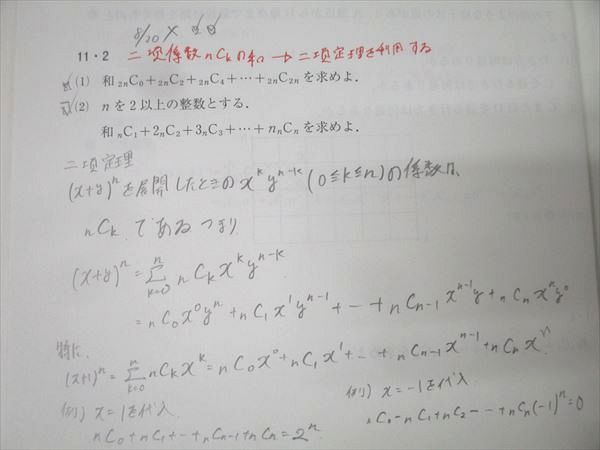 8/20 ×
11・2 二項係数 nCkの和 → 二項定理を利用する
(1) 和 ₂ₙC₀+₂ₙC₂+₂ₙC₄+⋯+₂ₙC₂ₙ を求めよ．
(2) n を 2 以上の整数とする．
和 ₙC₁+2ₙC₂+3ₙC₃+⋯+nₙCₙ を求めよ．
二項定理
(x+y)ⁿを展開したときの xᵏyⁿ⁻ᵏ (0≦k≦n)の係数は、
nCk であるつまり
(x+y)ⁿ = Σ[k=0→n] nCk xᵏyⁿ⁻ᵏ
= nC₀x⁰yⁿ + nC₁x¹yⁿ⁻¹ + ⋯ + nCn-1 xⁿ⁻¹y + nCn xⁿy⁰
特に、
(x+1)ⁿ = Σ[k=0→n] nCk xᵏ = nC₀x⁰ + nC₁x¹ + ⋯ + nCn-1 xⁿ⁻¹ + nCn xⁿ
例) x=1を代入
nC₀+nC₁+⋯+nCn-1+nCn = 2ⁿ
例) x=-1を代入
nC₀-nC₁+nC₂-⋯+nCn(-1)ⁿ=0